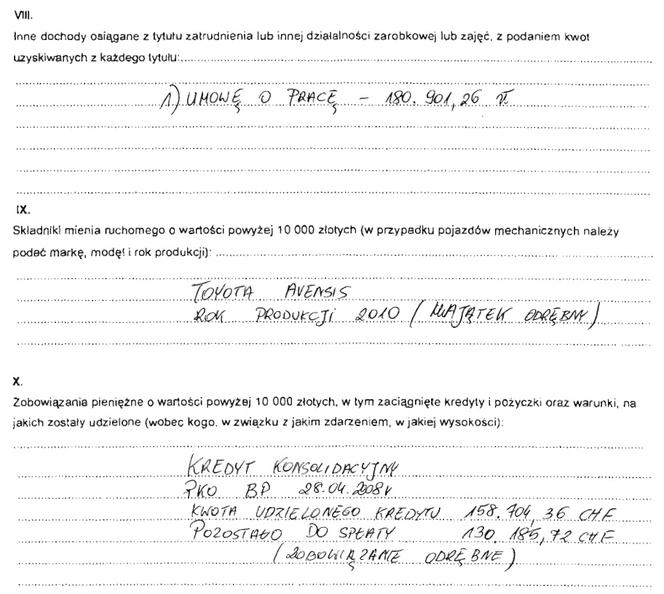 VIII.
Inne dochody osiągane z tytułu zatrudnienia lub innej działalności zarobkowej lub zajęć, z podaniem kwot
uzyskiwanych z każdego tytułu:
1) UMOWĘ O PRACĘ - 180.901,26 zł
IX.
Składniki mienia ruchomego o wartości powyżej 10 000 złotych (w przypadku pojazdów mechanicznych należy
podać markę, model i rok produkcji):
TOYOTA AVENSIS
ROK PRODUKCJI 2010 (MAJĄTEK ODRĘBNY)
X.
Zobowiązania pieniężne o wartości powyżej 10 000 złotych, w tym zaciągnięte kredyty i pożyczki oraz warunki, na
jakich zostały udzielone (wobec kogo, w związku z jakim zdarzeniem, w jakiej wysokości):
KREDYT KONSOLIDACYJNY
PKO BP 28.04.2008r
KWOTA UDZIELONEGO KREDYTU 158.704,36 CHF
POZOSTAŁO DO SPŁATY 130.185,72 CHF
(ZOBOWIĄZANIE ODRĘBNE)